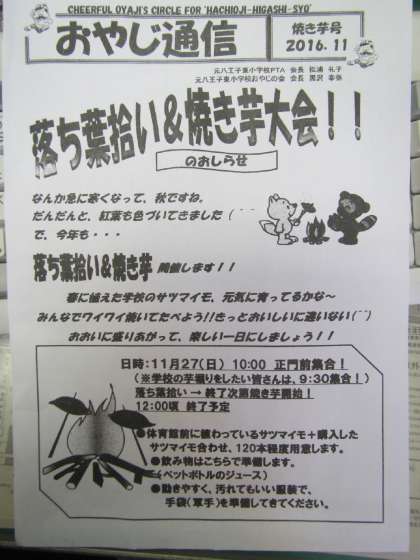 CHEERFUL OYAJI'S CIRCLE FOR 'HACHIOJI-HIGASHI-SYO'
おやじ通信
焼き芋号
2016.11
元八王子東小学校PTA 会長 松浦 礼子
元八王子東小学校おやじの会 会長 黒沢 幸弥
落ち葉拾い&焼き芋大会!!
のおしらせ
なんか急に寒くなって、秋ですね。
だんだんと、紅葉も色づいてきました(^-^
で、今年も・・・
落ち葉拾い&焼き芋 開催します!!
春に植えた学校のサツマイモ、元気に育ってるかな~
みんなでワイワイ焼いてたべよう!!きっとおいしいに違いない(^^)
おおいに盛りあがって、楽しい一日にしましょう!!
日時:11月27(日) 10:00 正門前集合!
(※学校の芋掘りをしたい皆さんは、9:30集合!)
落ち葉拾い → 終了次第焼き芋開始!
12:00頃 終了予定
●体育館前に植わっているサツマイモ+購入した
サツマイモ合わせ、120本程度用意します。
●飲み物はこちらで準備します。
(ペットボトルのジュース)
●動きやすく、汚れてもいい服装で、
手袋(軍手)を準備してきてください。